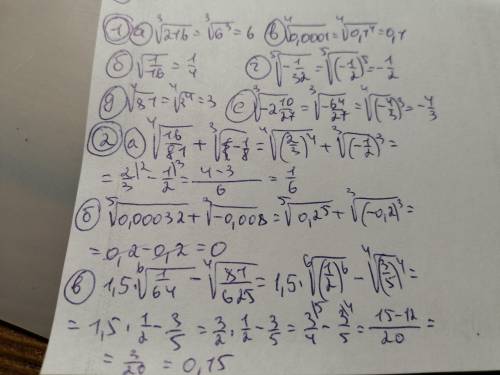 ① а) ∛216 = ∛6³ = 6 в) ⁴√0,0001 = ⁴√0,1⁴ = 0,1
б) √1/16 = 1/4 г) ⁵√-1/32 = ⁵√(-1/2)⁵ = -1/2
д) ⁴√81 = ⁴√3⁴ = 3 е) ∛-2 10/27 = ∛-64/27 = ∛(-4/3)³ = -4/3
② а) ⁴√16/81 + ∛-1/8 = ⁴√(2/3)⁴ + ∛(-1/2)³ =
= 2/3 - 1/2 = 4-3/6 = 1/6
б) ⁵√0,00032 + ∛-0,008 = ⁵√0,2⁵ + ∛(-0,2)³ =
= 0,2 - 0,2 = 0
в) 1,5 · ⁶√1/64 - ⁴√81/625 = 1,5 · ⁶√(1/2)⁶ - ⁴√(3/5)⁴ =
= 1,5 · 1/2 - 3/5 = 3/2 · 1/2 - 3/5 = 3/4 - 3/5 = 15-12/20 =
= 3/20 = 0,15